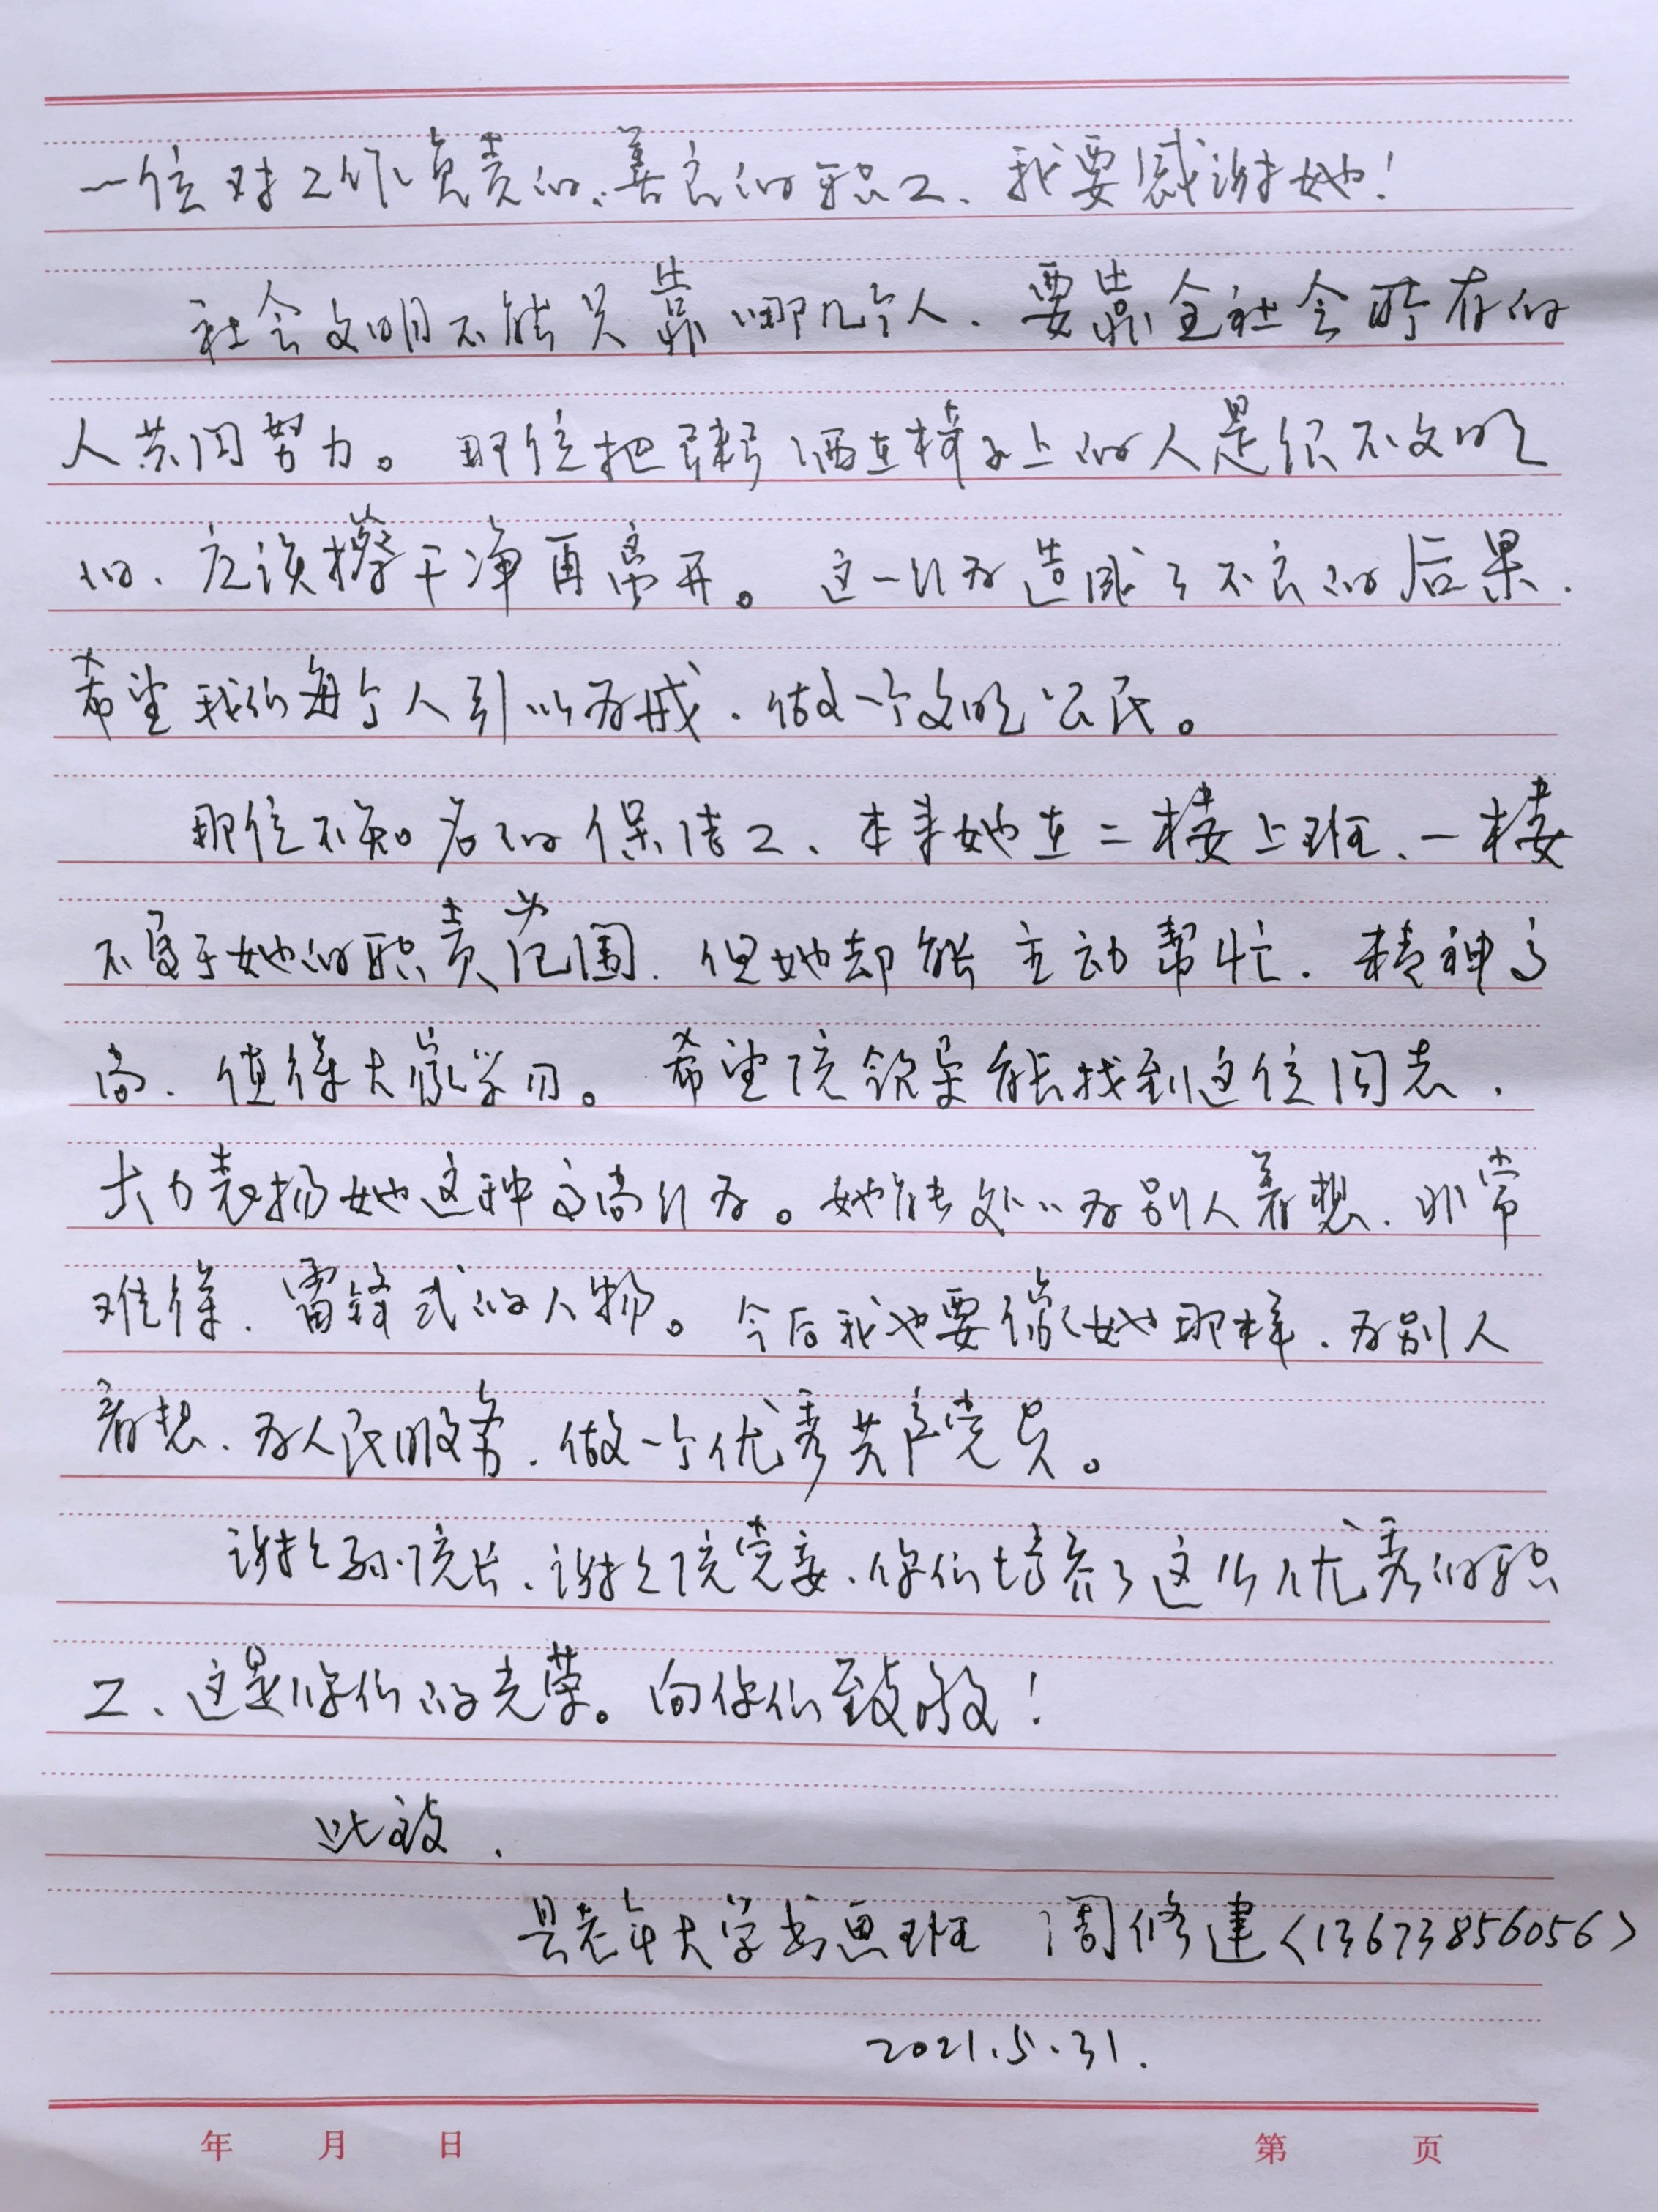 一位对工作负责的、善良的职工、我要感谢她！
社会文明不能只靠哪几个人、要靠全社会所有的
人共同努力。那位把粥洒在椅子上的人是很不文明
的、应该擦干净再离开。这一行为造成了不良的后果.
希望我们每个人引以为戒、做一个文明公民。
那位不知名的保洁工、本来她在二楼上班、一楼
不属于她的职责范围、但她却能主动帮忙、精神高
尚、值得大家学习。希望院领导能找到这位同志、
大力表扬她这种高尚行为。她能处处为别人着想、非常
难得、雷锋式的人物。今后我也要像她那样、为别人
着想、为人民服务、做一个优秀共产党员。
谢谢孙院长、谢谢院党委、你们培养了这么优秀的职
工、这是你们的光荣。向你们致敬！
此致、
县老年大学书画班 周修建<13673856056>
2021.5.31.
年 月 日 第 页